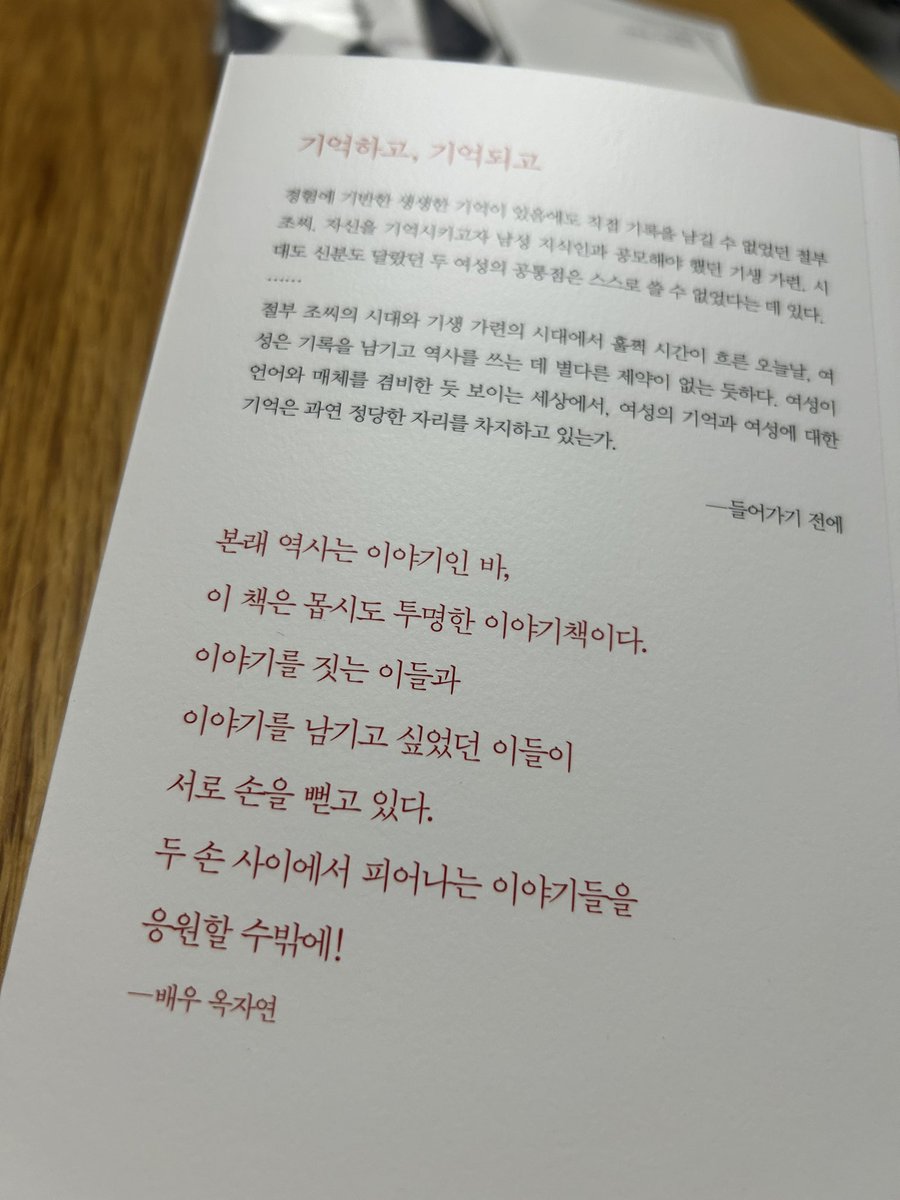 기억하고, 기억되고
경험에 기반한 생생한 기억이 있음에도 직접 기록을 남길 수 없었던 절부
조씨, 자신을 기억시키고자 남성 지식인과 공모해야 했던 기생 가련. 시
대도 신분도 달랐던 두 여성의 공통점은 스스로 쓸 수 없었다는 데 있다.
……
절부 조씨의 시대와 기생 가련의 시대에서 훌쩍 시간이 흐른 오늘날, 여
성은 기록을 남기고 역사를 쓰는 데 별다른 제약이 없는 듯하다. 여성이
언어와 매체를 겸비한 듯 보이는 세상에서, 여성의 기억과 여성에 대한
기억은 과연 정당한 자리를 차지하고 있는가.
—들어가기 전에
본래 역사는 이야기인 바,
이 책은 몹시도 투명한 이야기책이다.
이야기를 짓는 이들과
이야기를 남기고 싶었던 이들이
서로 손을 뻗고 있다.
두 손 사이에서 피어나는 이야기들을
응원할 수밖에!
—배우 옥자연